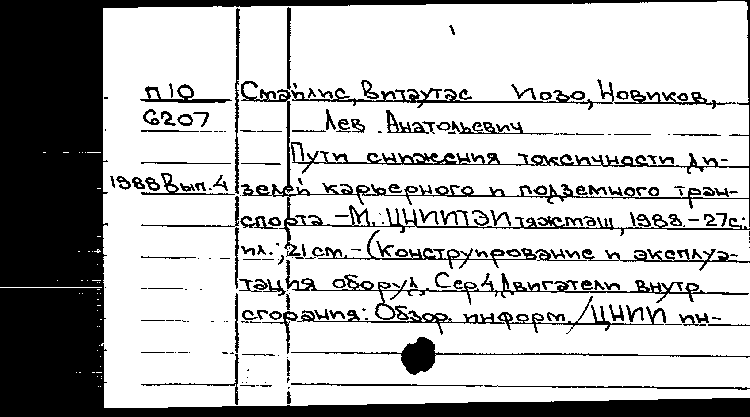 1
П10 Стайлис, Витаутас Йозо, Новиков,
6207 Лев Анатольевич
Пути снижения токсичности ди-
1988 Вып. 4 зелей карьерного и подземного тран-
спорта - М. ЦНИИТЭИтяжмаш, 1988. - 27с.:
ил.; 21 см. - (Конструирование и эксплуа-
тация оборуд. Сер. 4, Двигатели внутр.
сгорания: Обзор. информ. / ЦНИИ ин-